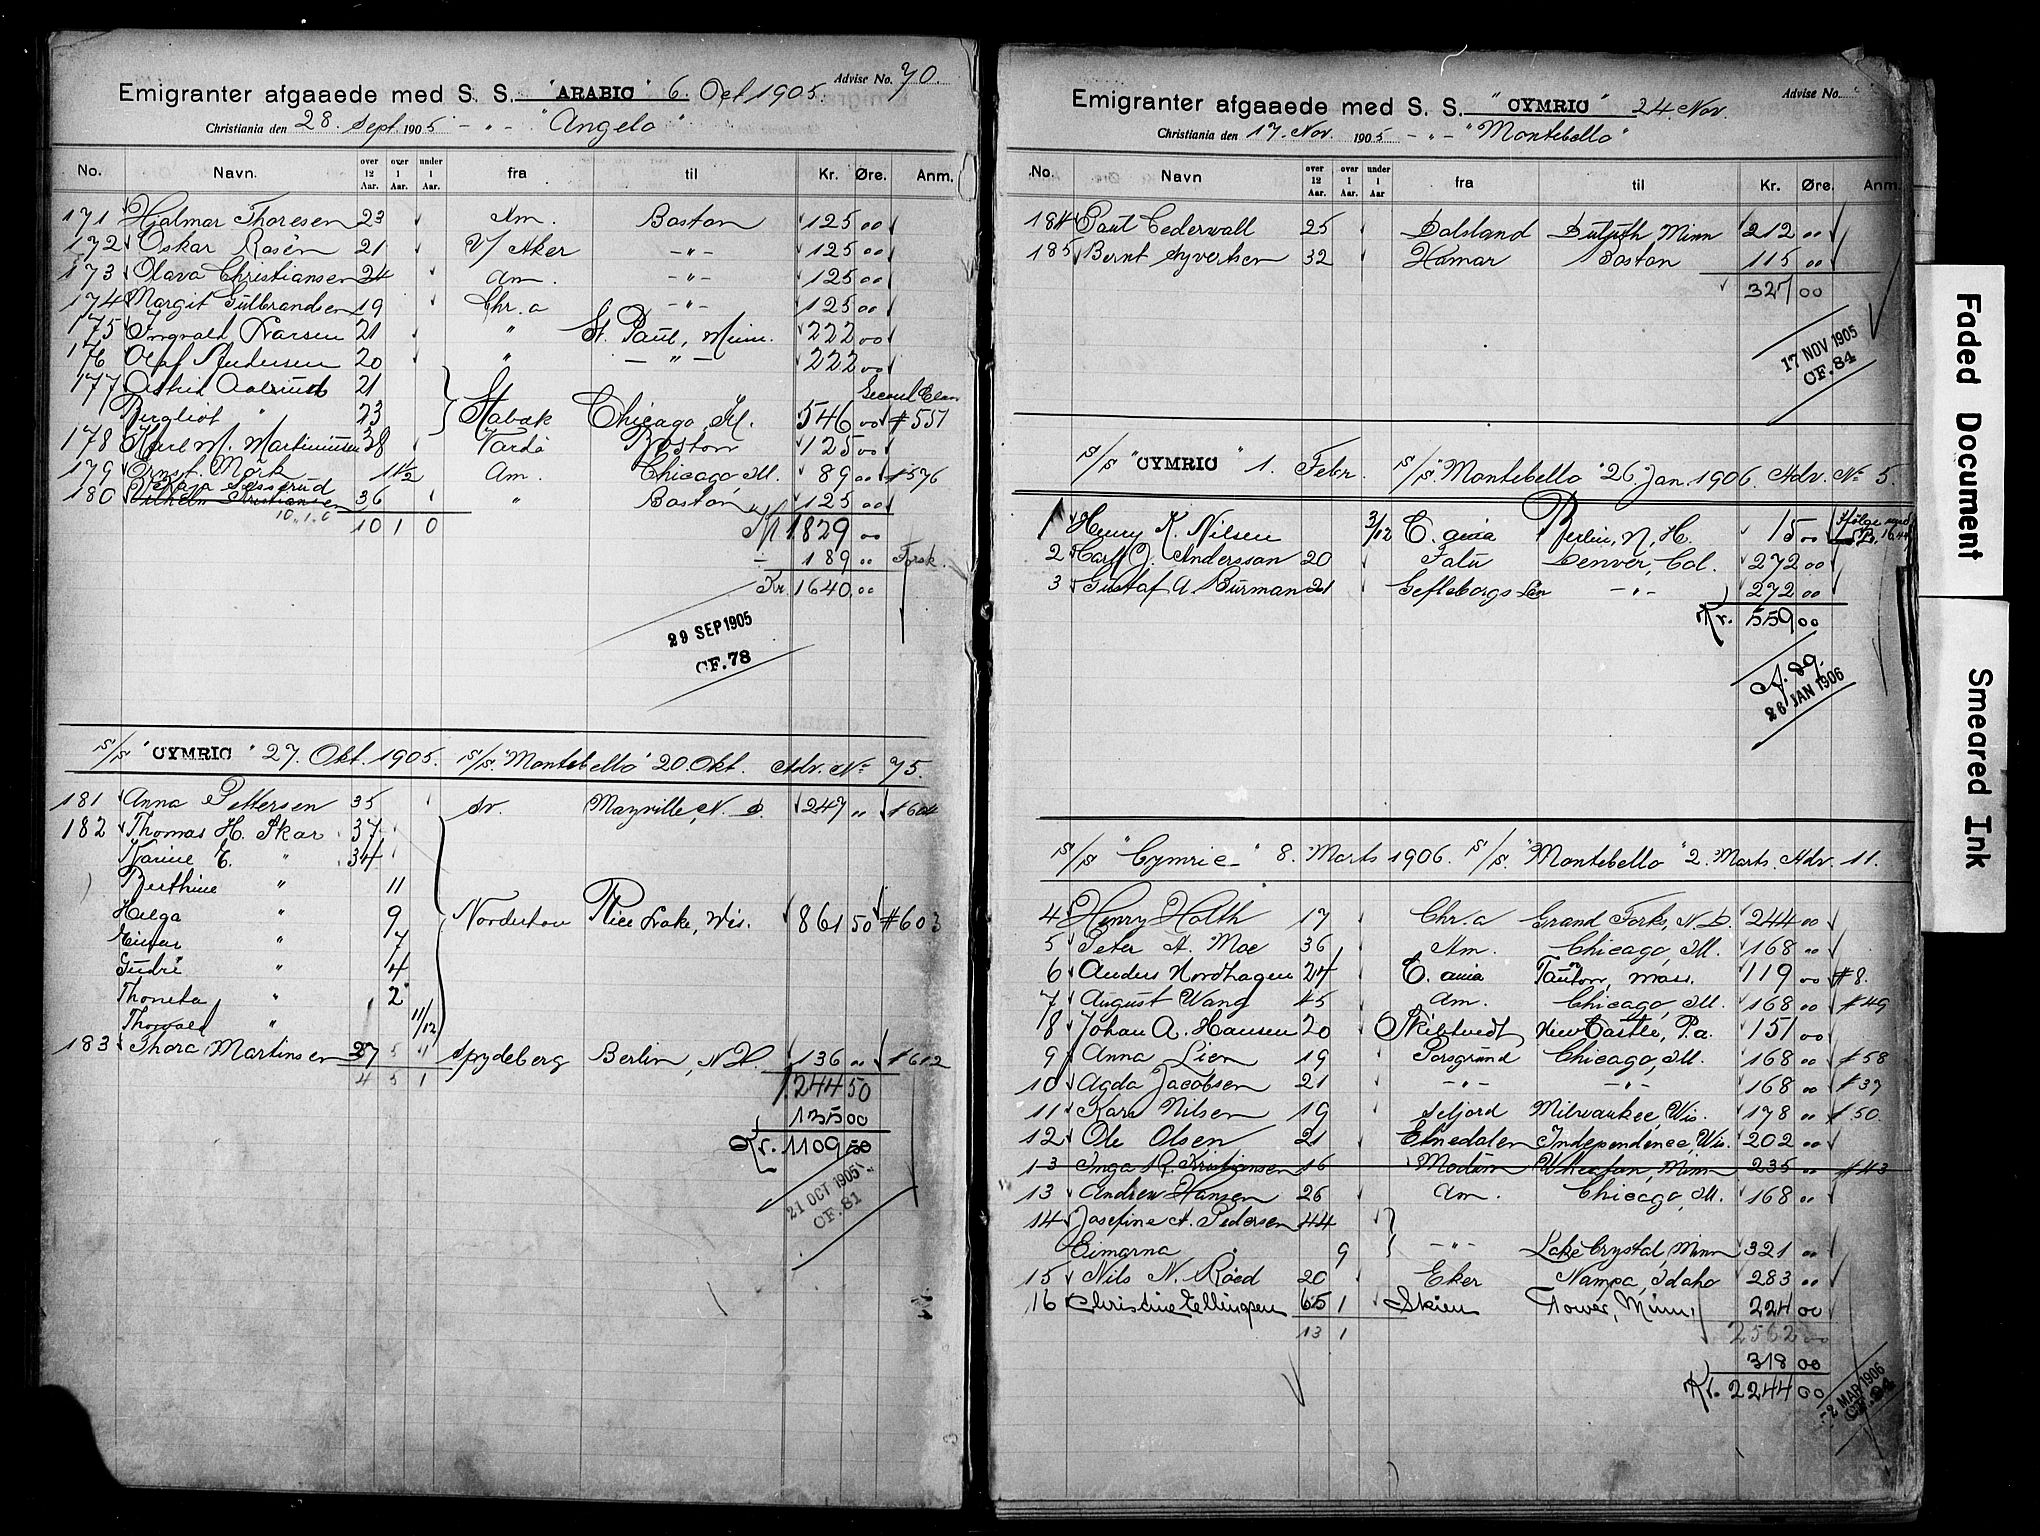 Advise No. 70.
Emigranter afgaaede med S. S. "ARABIC" 6. Oct 1905.
Christiania den 28. Sept. 1905 - „ - "Angelo"
No. Navn. over 12 Aar. over 1 Aar. under 1 Aar. fra til Kr. Øre. Anm.
171 Hjalmar Thoresen 23 Am. Boston 125 00
172 Oskar Rosén 21 V/ Aker - „ - 125 00
173 Olava Christiansen 24 Am. - „ - 125 00
174 Margit Gulbrandsen 19 Chr.a - „ - 125 00
175 Ingvald Larsen 21 „ St. Paul, Minn. 222 00
176 Olaf Andersen 20 „ - „ - 222 00
177 Astrid Aalrud 21 Second Class
Bergliot „ 23 Stabæk Chicago, Ill. 546 00 #551
178 Karl M. Martiniusen 38 Vardö Boston 125 00
179 Ernst Mörk 11 1/2 Am. Chicago, Ill. 89 00 #576
180 Vilhelm Kristiansen 36 „ Boston 125 00
10 „ 1 „ 0
10 1 0 1829 00
189 00 Forsk.
Kr. 1640 00
29 SEP 1905
CF. 78
S/S "CYMRIC" 27. Okt. 1905. S/S. "Montebello" 20. Okt. Adv. No 75.
181 Anna Pettersen 35 Av. Mayville, N. D. 247 „ #604
182 Thomas H. Skar 37
Karine E. „ 34
Berthine „ 11
Helga „ 9 Norderhov Rice Lake, Wis. 861 50 #603
Einar „ 7
Gudrè „ 4
Thonetta „ 2
Thorvald „ 11/12
183 Thora Martinsen 27 5 „ Spydeberg Berlin, N.H. 136 „ #612
4 5 1 1244 50
135 00
Kr. 1109 50
21 OCT 1905
CF. 81
Advise No.
Emigranter afgaaede med S. S. "CYMRIC" 24. Nov.
Christiania den 17. Nov. 1905 - „ - "Montebello"
No. Navn over 12 Aar. over 1 Aar. under 1 Aar fra til Kr. Øre. Anm.
184 Paul Cedervall 25 Dalsland Duluth Minn 212 00
185 Bernt Syvertsen 32 Hamar Boston 115 00
327 00
17 NOV 1905
CF. 84
S/S "CYMRIC" 1. Febr. S/S. "Montebello" 26. Jan. 1906. Adv. No 5.
1 Henry K. Nilsen 3/12 C. ania Berlin, N. H. 15 00
2 Carl J. Andersson 20 Falu Denver, Col. 272 00
3 Gustaf A. Burman 21 Gefleborgs Län - „ - 272 00
Kr. 559 00
26 JAN 1906
S/S "Cymric" 8. Marts 1906. S/S. "Montebello" 2. Marts. Adv. 11.
4 Henry Holth 17 Chr.a Grand Forks, N.D. 244 00
5 Peter A. Moe 36 Am. Chicago, Ill. 168 „
6 Anders Nordhagen 24 C. ania Taunton, Mass. 119 00 #8.
7 August Wang 45 Am. Chicago, Ill. 168 00 #49
8 Johan A. Hansen 20 Skibtvedt New Castle, Pa. 151 00
9 Anna Lien 19 Porsgrund Chicago, Ill. 168 00 #58
10 Agda Jacobsen 21 - „ - - „ - 168 00 #37
11 Kare Nilsen 19 Seljord Milwaukee, Wis. 178 „ #50.
12 Ole Olsen 21 Etnedalen Independence, Wis. 202 00
13 Inga R. Kristiansen 16 Modum Wheaton, Minn 235 „ #43
13 Andrew Hansen 26 Am. Chicago, Ill. 168 „
14 Josefine A. Pedersen 44
Eimarna 9 - „ - Lake Crystal, Minn 321 „
15 Nils N. Röed 20 Eker Nampa, Idaho 283 „
16 Christine Ellingsen 65 1 Skien Tower, Minn. 224 00
13 1 2562 00
318 00
Kr. 2244 00
2 MAR 1906
Faded Document
Smeared Ink